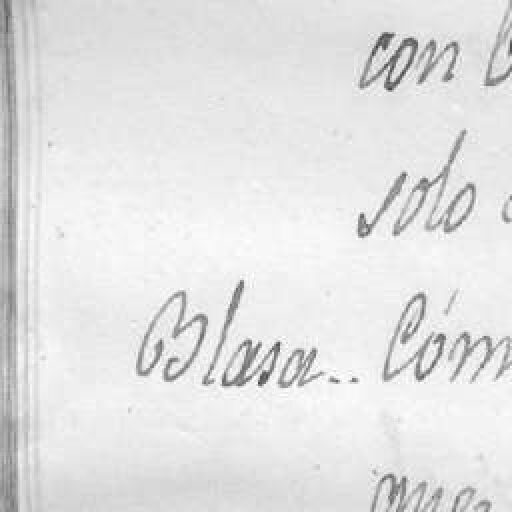 con
solo
Blasa.. Cóm